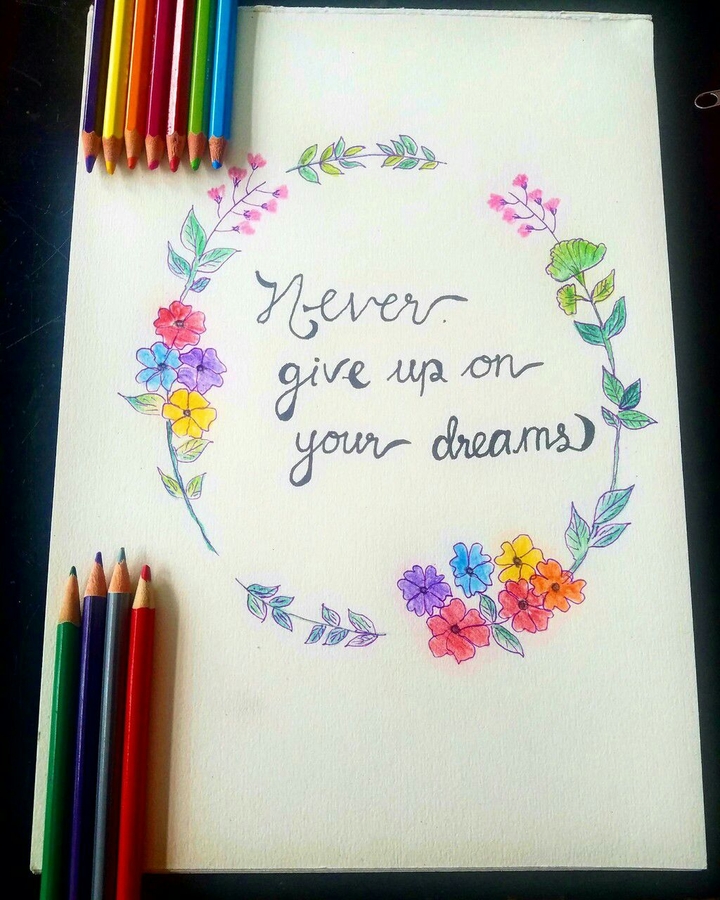 Never.
give up on
your dreams